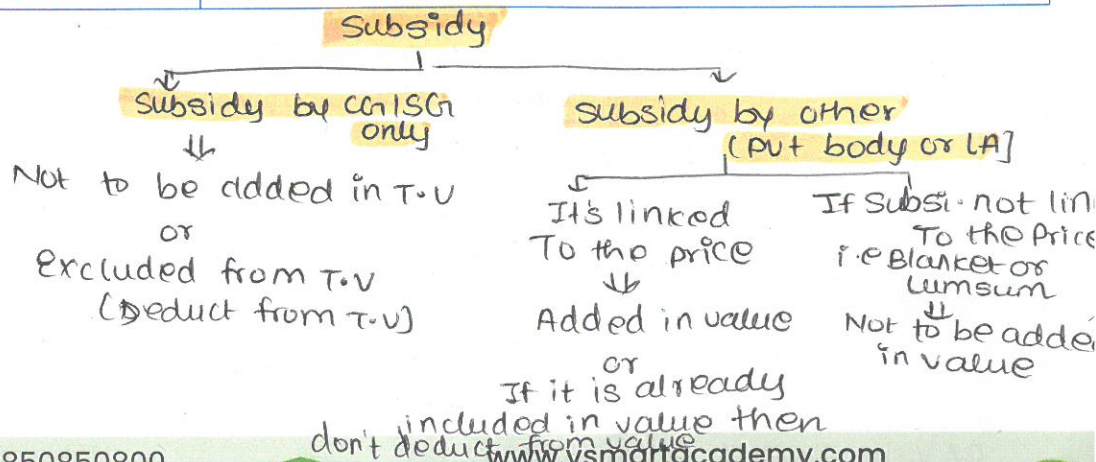 Subsidy
Subsidy by CG/SG
only
Not to be added in T.V
or
Excluded from T.V
(Deduct from T.V)
Subsidy by other
(Pvt body or LA]
It's linked
To the price
Added in value
or
If it is already
included in value then
don't deduct from value
If Subsi. not lin
To the Price
i.e Blanket or
Lumsum
Not to be adde
in value
850850800
www.vsmartacademy.com